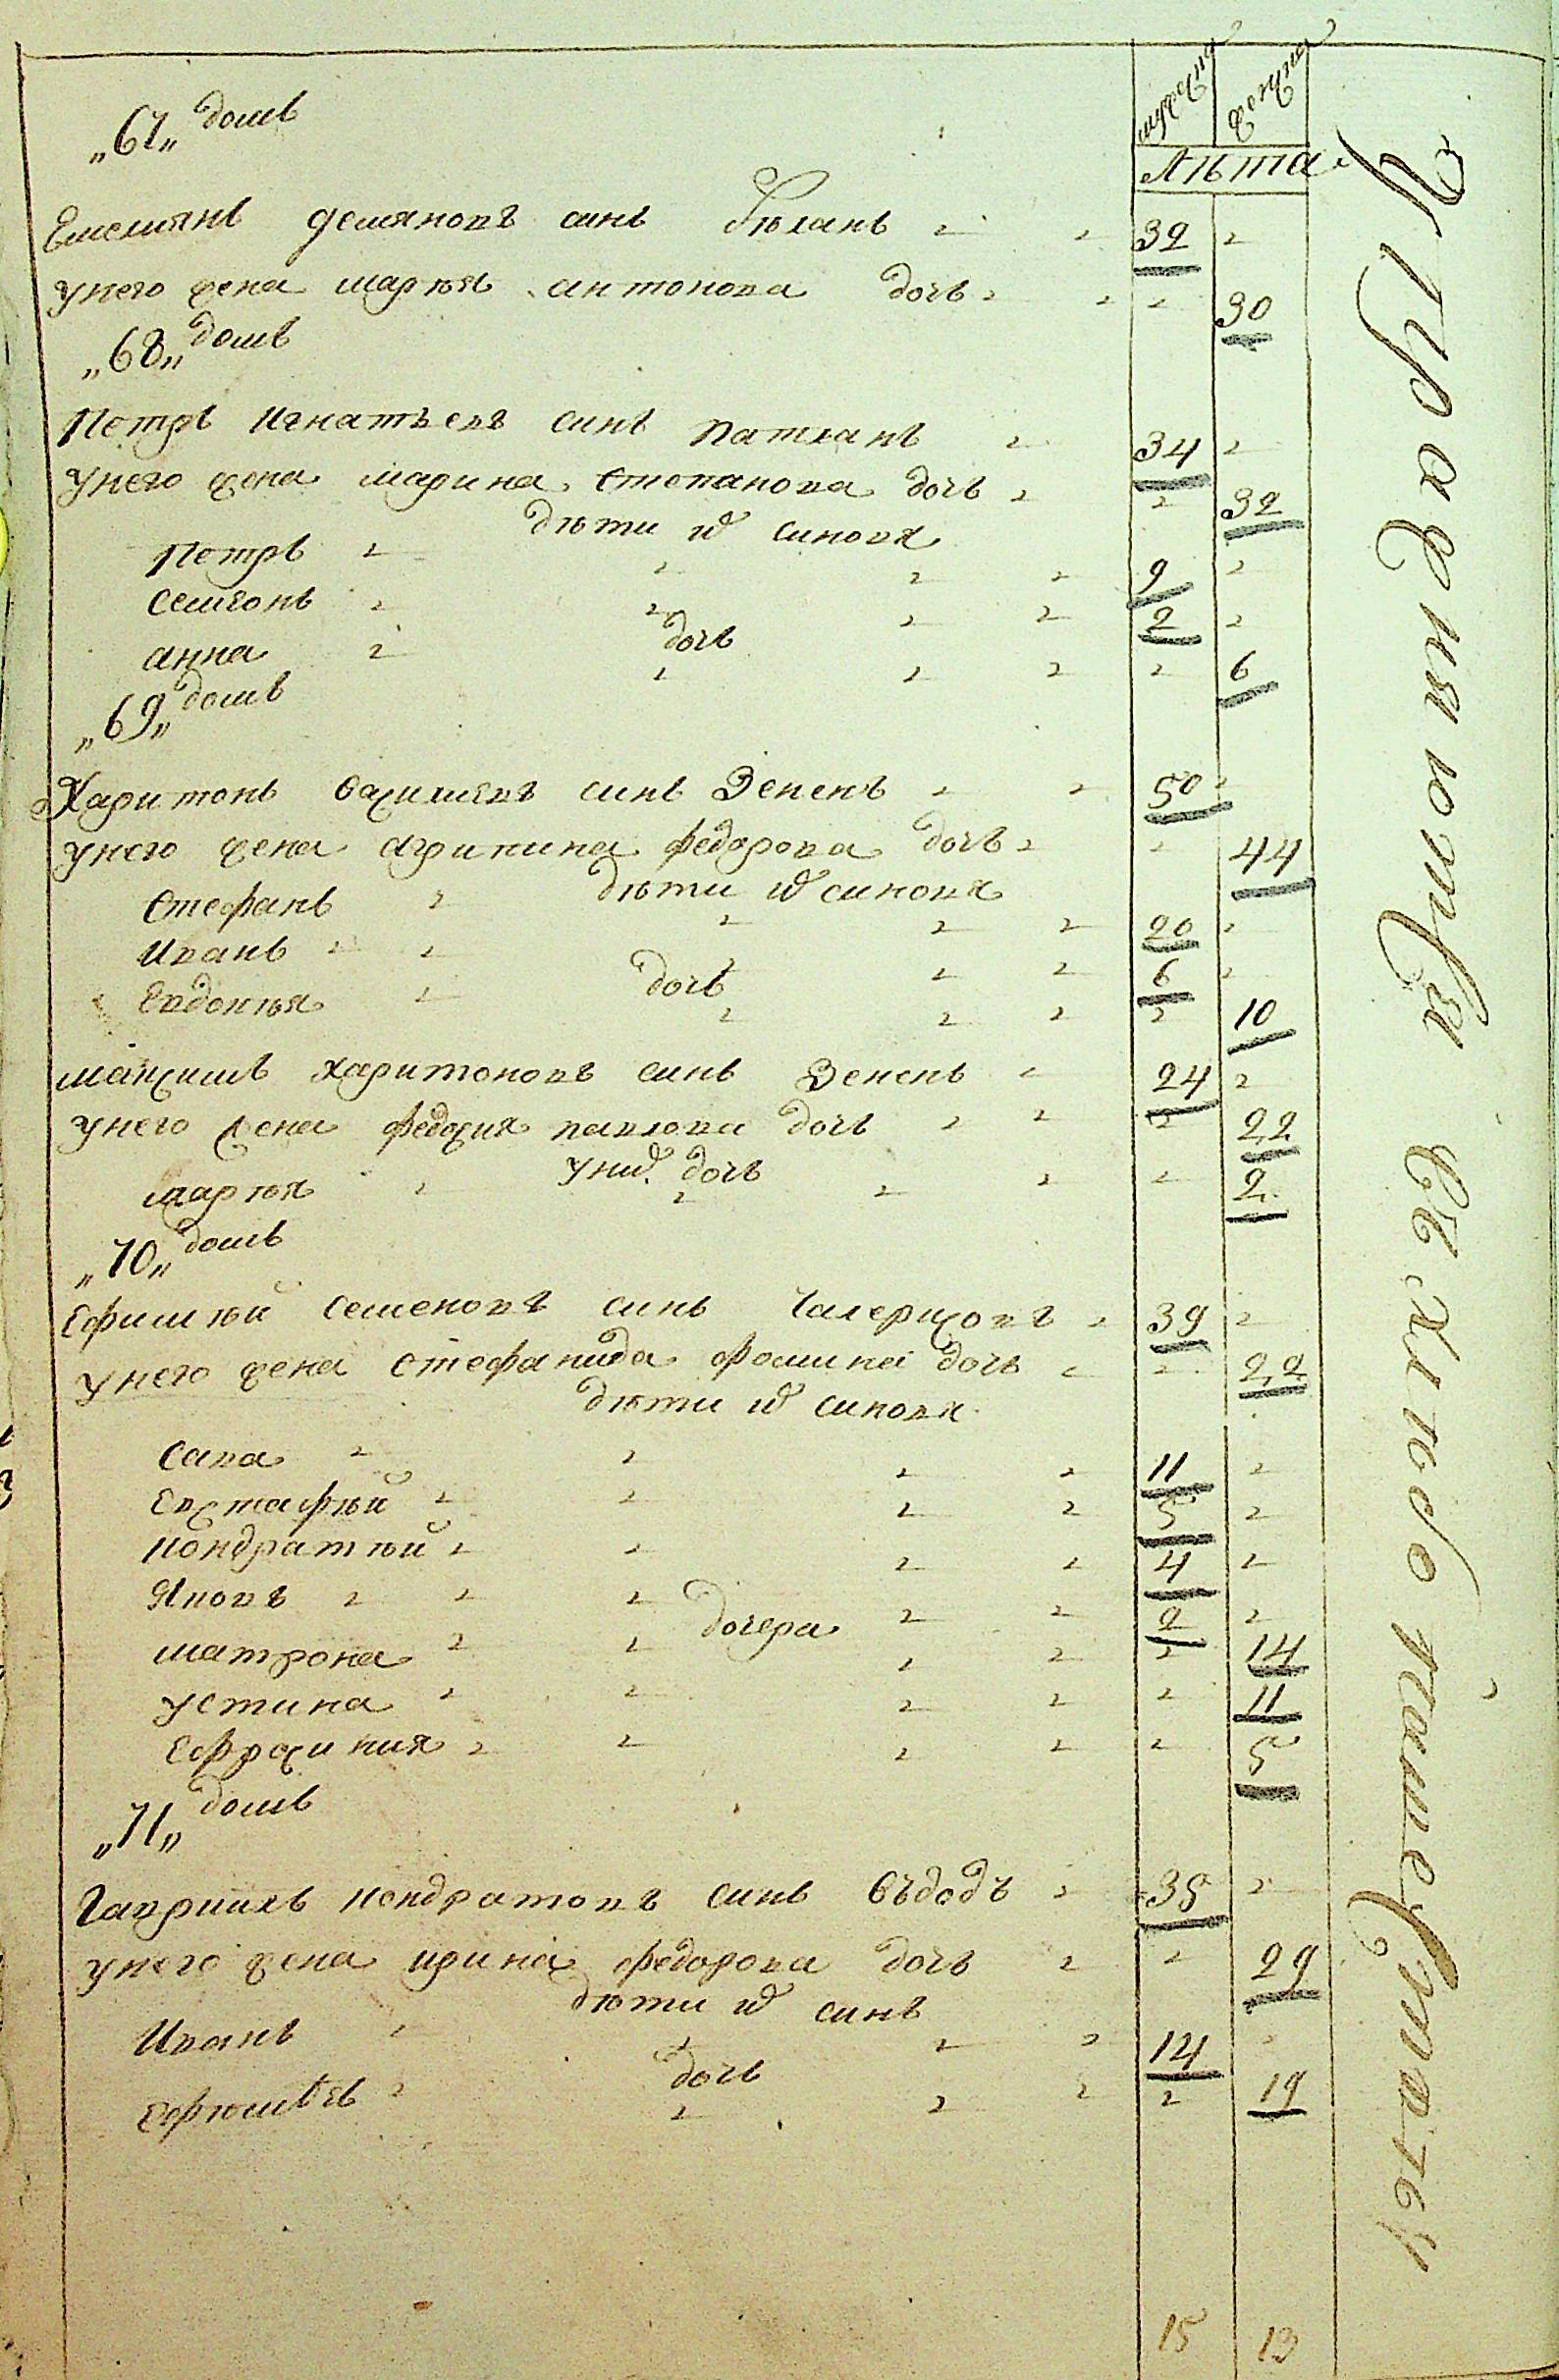 мужска женска
Лѣта
„67„ домъ
Емелиянъ Демяновъ синъ Бѣланъ 32
у него жена Марѣя Антонова дочь 30
„68„ домъ
Петръ Игнатьевъ синъ Патланъ 34
у него жена Марина Степанова дочь 32
дѣти их синовя
Петръ 9
Семионъ 2
дочь
Анна 6
„69„ домъ
Харитонъ синъ Зененъ 50
у него жена Агрипина Федорова дочь 44
дѣти их синовя
Стефанъ 20
Иванъ 6
дочь
Евдокѣя 10
Максимъ Харитоновъ синъ Зененъ 24
у него жена Федосия Павлова дочь 22
у них дочь
Марѣя 2
„70„ домъ
Ефимѣй Семеновъ синъ 39
у него жена Стефанида Фомина дочь 22
дѣти их синовя
Сава 11
Евстафѣй 5
Кондратѣй 4
Яковъ 2
дочера
Матрона 14
Устина 11
Ефросиния 5
„71„ домъ
Гавриилъ Кондратовъ синъ 35
у него жена Ирина Федорова дочь 29
дѣти их синъ
Иванъ 14
дочь
19
15 13